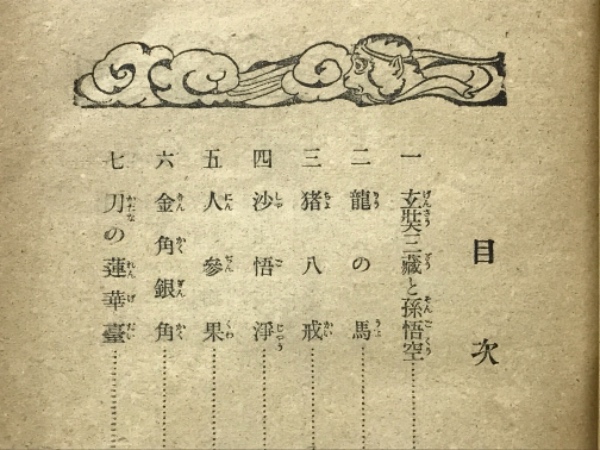 目次
一 玄奘三藏と孫悟空
二 龍の馬
三 猪八戒
四 沙悟淨
五 人參果
六 金角銀角
七 刀の蓮華臺